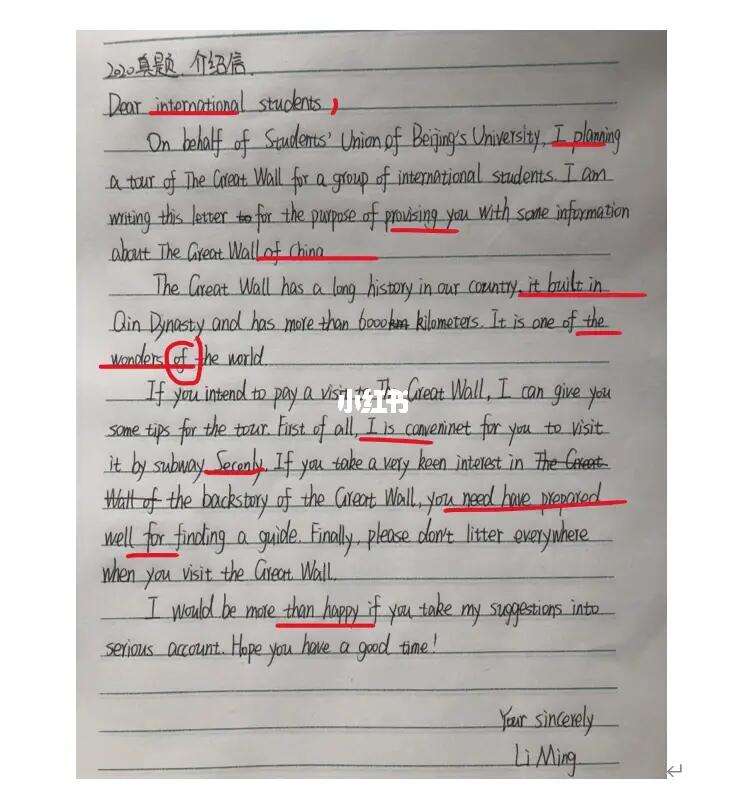 2020真题. 介绍信.
Dear international students,
On behalf of Students' Union of Beijing's University, I planning
a tour of The Great Wall for a group of international students. I am
writing this letter to for the purpose of provising you with some information
about The Great Wall of China
The Great Wall has a long history in our country, it built in
Qin Dynasty and has more than 6000km kilometers. It is one of the
wonders of the world.
If you intend to pay a visit to The Great Wall, I can give you
小红书
some tips for the tour. First of all, I is conveninet for you to visit
it by subway. Seconly, If you take a very keen interest in The Great
Wall of the backstory of the Great Wall, you need have prepared
well for finding a guide. Finally, please don't litter everywhere
when you visit the Great Wall.
I would be more than happy if you take my suggestions into
serious account. Hope you have a good time!
Your sincerely
Li Ming